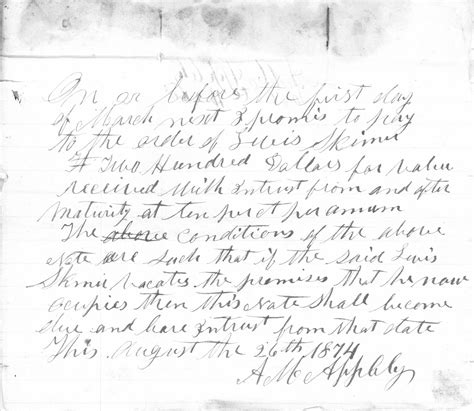 On or before the first day
of March next I promis to pay
to the order of Lewis Skimer
$ Two Hundred Dollars for value
received With Intrust from and after
Maturity at ten per ct per annum
The above Conditions of the above
Note are Such that if the said Lewis
Skimer vacates the promises that he now
ocupies then this Note Shall become
due and bare Intrust from that date
This August the 26th 1874
A Mc Appleby